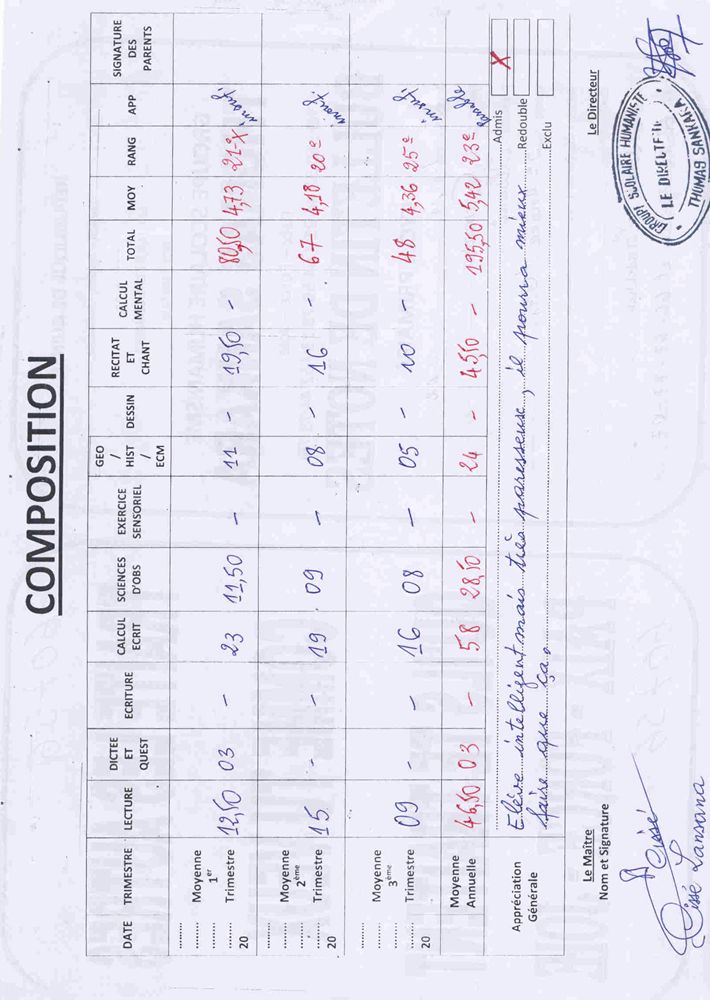 COMPOSITION
DATE TRIMESTRE LECTURE DICTEE ET QUEST ECRITURE CALCUL ECRIT SCIENCES D'OBS EXERCICE SENSORIEL GEO / HIST / ECM DESSIN RECITAT ET CHANT CALCUL MENTAL TOTAL MOY RANG APP SIGNATURE DES PARENTS
........ ........ 20 Moyenne 1er Trimestre 12,50 03 - 23 11,50 - 11 - 19,50 - 80,50 4,73 21e X insuf.
........ ........ 20 Moyenne 2ème Trimestre 15 - - 19 09 - 08 - 16 - 67 4,18 20e insuf.
........ ........ 20 Moyenne 3ème Trimestre 09 - - 16 08 - 05 - 10 - 48 4,36 25e insuf.
Moyenne Annuelle 46,50 03 - 58 28,50 - 24 - 45,50 - 195,50 5,42 23e passable
Appréciation Générale
Elève intelligent mais très paresseuse, il pourra mieux
faire que ça.
Admis X
Redouble
Exclu
Le Maître
Nom et Signature
Cissé
Cissé Lansana
Le Directeur
GROUPE SCOLAIRE HUMANISTE
LE DIRECTEUR
THOMAS SANKARA